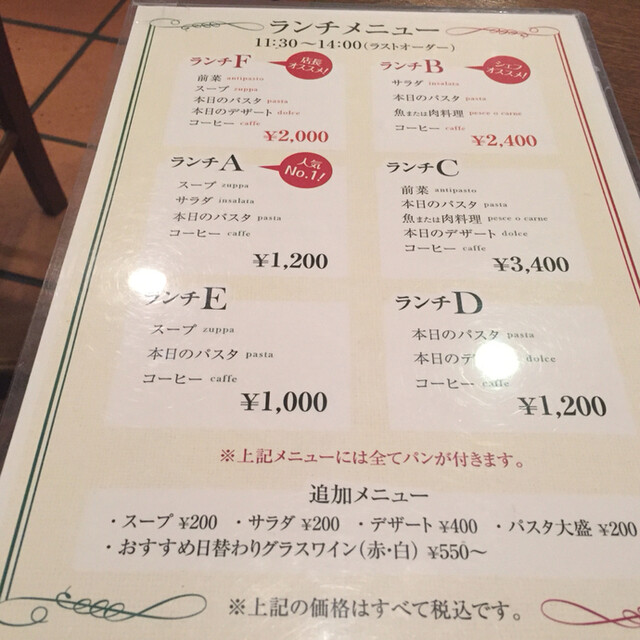 ランチメニュー
11:30～14:00(ラストオーダー)
ランチF
店長
オススメ!
前菜 antipasto
スープ zuppa
本日のパスタ pasta
本日のデザート dolce
コーヒー caffe
¥2,000
ランチB
シェフ
オススメ!
サラダ insalata
本日のパスタ pasta
魚または肉料理 pesce o carne
コーヒー caffe
¥2,400
ランチA
人気
No.1!
スープ zuppa
サラダ insalata
本日のパスタ pasta
コーヒー caffe
¥1,200
ランチC
前菜 antipasto
本日のパスタ pasta
魚または肉料理 pesce o carne
本日のデザート dolce
コーヒー caffe
¥3,400
ランチE
スープ zuppa
本日のパスタ pasta
コーヒー caffe
¥1,000
ランチD
本日のパスタ pasta
本日のデザート dolce
コーヒー caffe
¥1,200
※上記メニューには全てパンが付きます。
追加メニュー
・スープ ¥200 ・サラダ ¥200 ・デザート ¥400 ・パスタ大盛 ¥200
・おすすめ日替わりグラスワイン(赤・白) ¥550～
※上記の価格はすべて税込です。